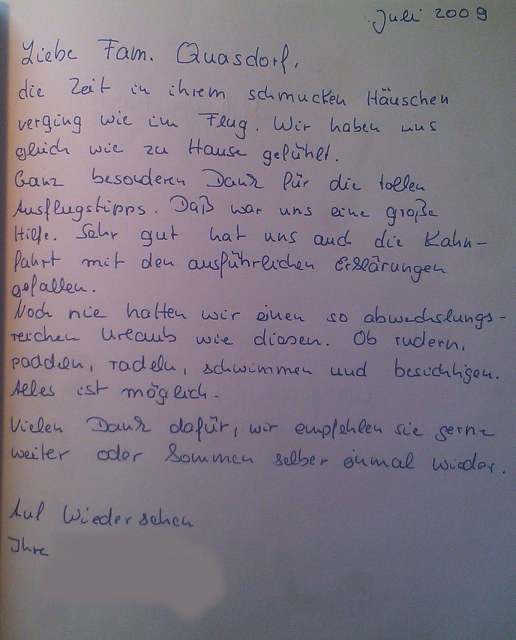 Juli 2009
Liebe Fam. Quasdorf,
die Zeit in ihrem schmucken Häuschen
verging wie im Flug. Wir haben uns
gleich wie zu Hause gefühlt.
Ganz besonderen Dank für die tollen
Ausflugstipps. Daß war uns eine große
Hilfe. Sehr gut hat uns auch die Kahn-
fahrt mit den ausführlichen Erklärungen
gefallen.
Noch nie hatten wir einen so abwechslungs-
reichen Urlaub wie diesen. Ob rudern,
paddeln, radeln, schwimmen und besichtigen.
Alles ist möglich.
Vielen Dank dafür, wir empfehlen sie gerne
weiter oder kommen selber einmal wieder.
Auf Wiedersehen
Ihre